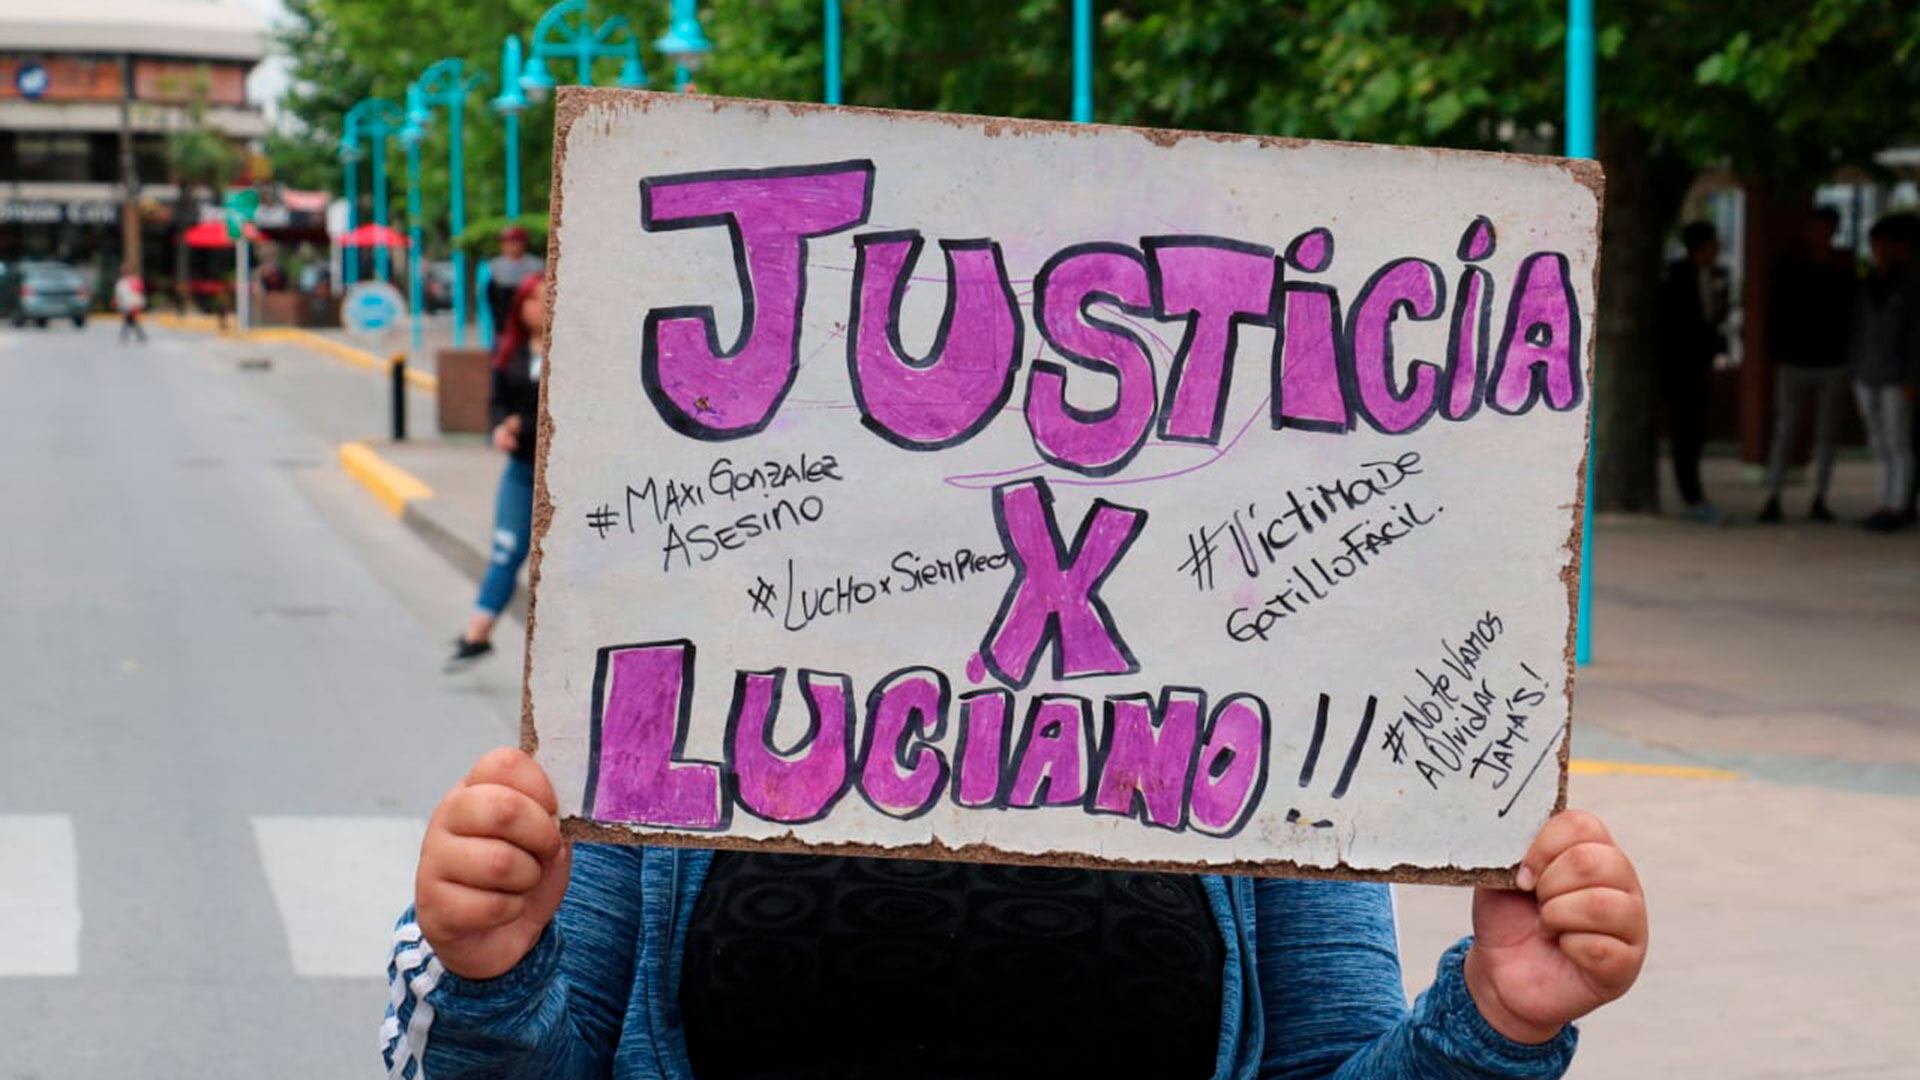 JUSTICIA
#MAXI GONZALEZ
ASESINO
X
#LUCHOxSiEMPRE
#VictiMaDE
GatiLLoFáciL.
LUCIANO!!
#NoteVamos
A Olvidar
JAMÁS!